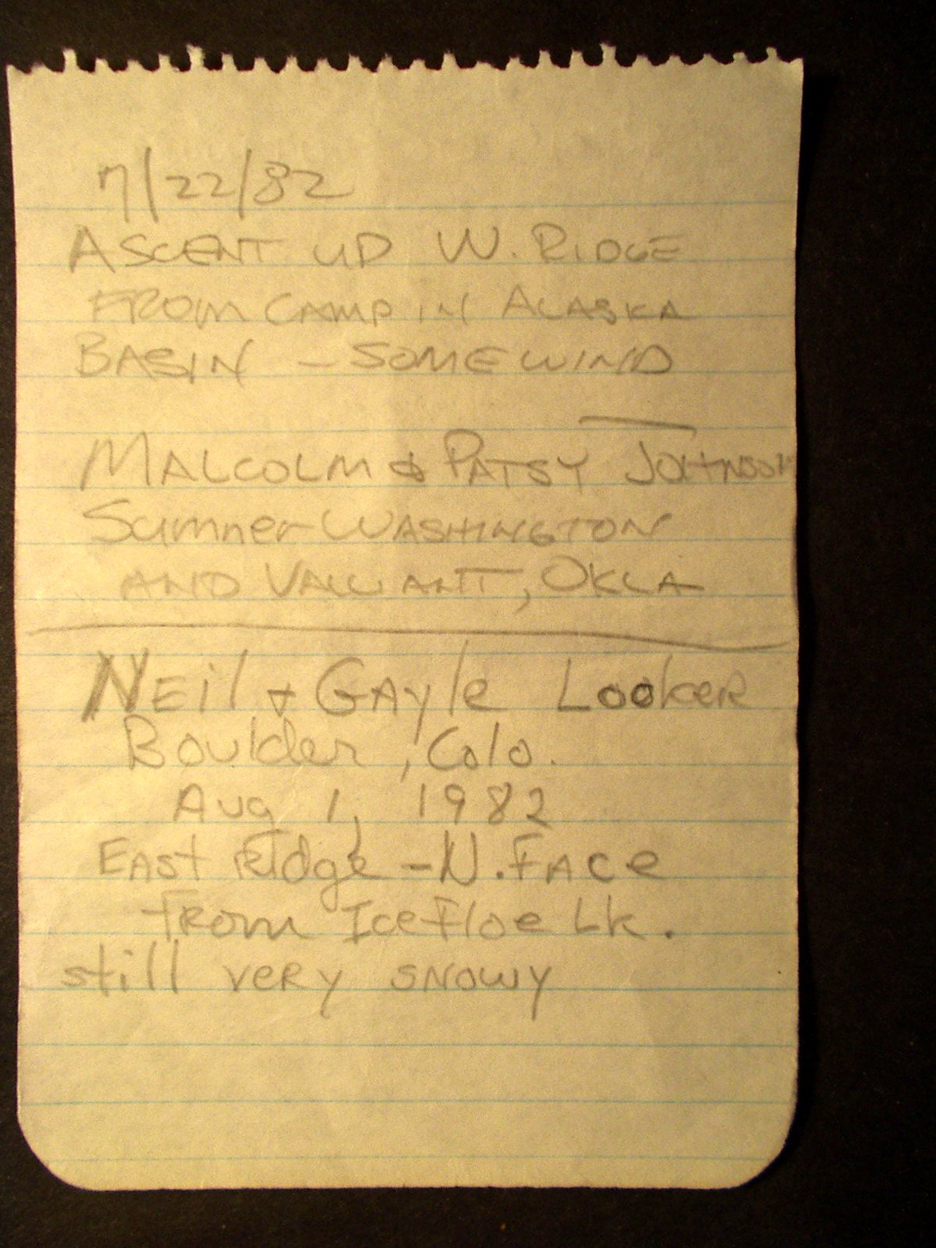 7/22/82
ASCENT UP W. RIDGE
FROM CAMP IN ALASKA
BASIN - SOME WIND
MALCOLM & PATSY JOHNSON
Sumner WASHINGTON
AND VALLIANT, OKLA
NEil + GAyle LookER
Boulder, Colo.
Aug 1, 1982
EAST Ridge - N. FACE
From IceFloe Lk.
still VERY SNOWY